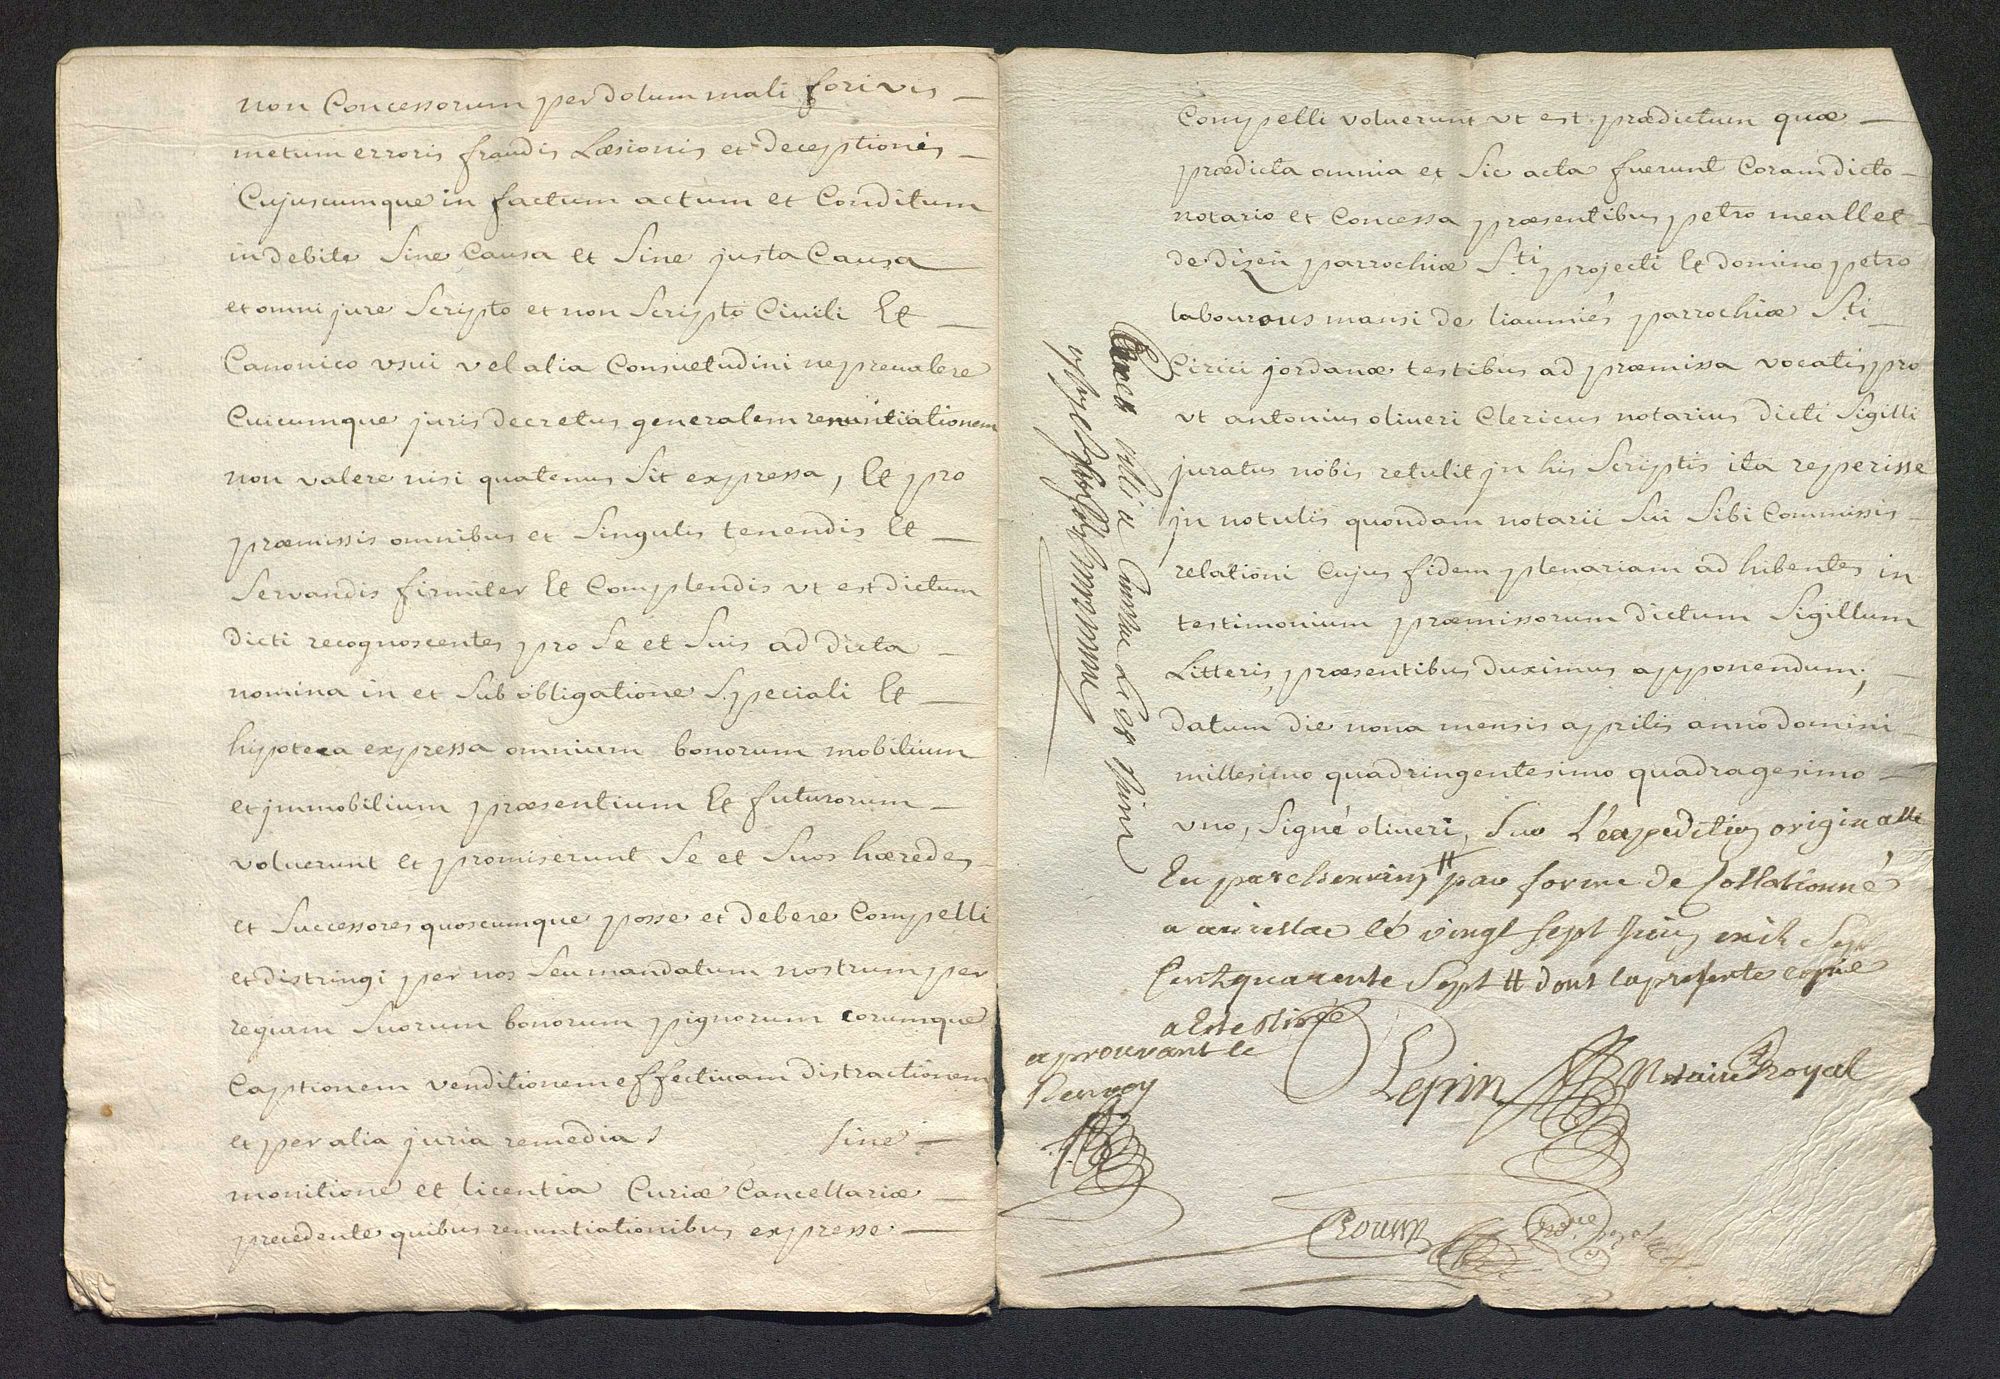 non Concessorum per dolum mali fori vis
metum erroris fraudis Læsionis et deceptionis
Cujuscumque in factum actum et Conditum
indebite Sine Causa et Sine justa Causa
et omni jure Scripto et non Scripto Civili Et
Canonico usui vel alia Consuetudini ne prevalere
Cuicumque juris decretus generalem renuntiationem
non valere nisi quatenus Sit expressa, Et pro
præmissis omnibus et Singulis tenendis Et
Servandis firmiter Et Complendis ut est dictum
dicti recognoscentes pro Se et Suis ad dicta
nomina in et Sub obligatione Speciali Et
hypoteca expressa omnium bonorum mobilium
et jmmobilium præsentium Et futurorum
voluerunt et promiserunt Se et Suos hæredes
et Successores quoscumque posse et debere Compelli
et distringi per nos Seu mandatum nostrum per
requam Suorum bonorum pignorum eorumque
Captionem venditionem effectivam distractionem
et per alia juria remedia Sine
monitione et licentia Curiæ Cancellariæ
precedente quibus renuntiationibus expresse
Compelli voluerunt ut est prædictum quæ
prædicta omnia et Sic acta fuerunt Coram dicto
notario et Concessa præsentibus petro meallet
de dizeu parrochiæ S.ti projecti Et domino petro
labourous mansi de liaumiés parrochiæ S.ti
Cirici jordanæ testibus ad præmissa vocatis pro
ut antonius oliveri Clericus notarius dicti Sigilli
juratus nobis retulit jn his Scriptis ita reperisse
jn notulis quondam notarii Sui Sibi Commissis
relationi Cujus fidem plenariam adhibentes in
testimonium præmissorum dictum Sigillum
Litteris præsentibus duximus apponendum;
datum die nona mensis aprilis anno domini
millesimo quadringentesimo quadragesimo
uno, Signé oliveri, Sur L'expedition originalle
En parchemin # par forme de Collationné
a aurillac le vingt sept Juin mil Sept
Cent quarante Sept # dont la presente copie
a Eté tirée
aprouvant le
Renvoy
Lepin Notaire Royal